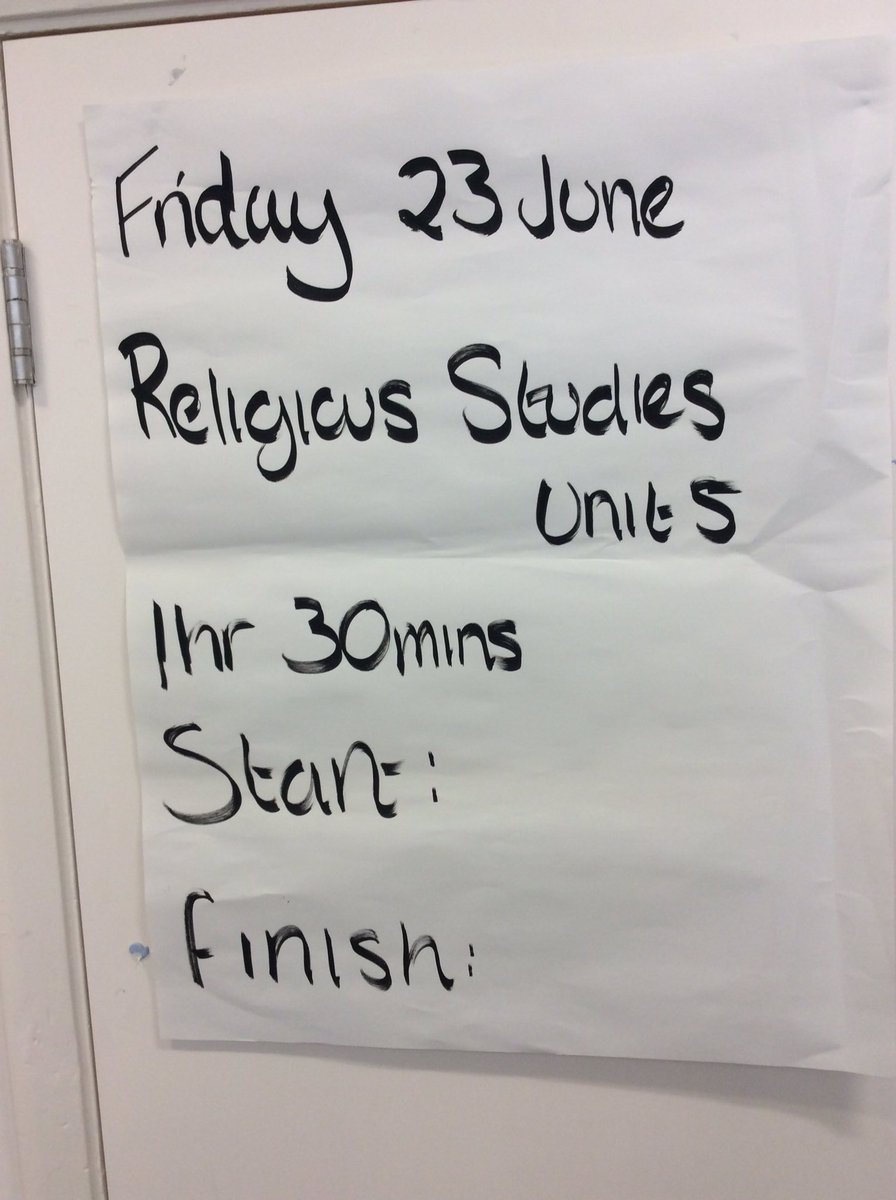 Friday 23 June
Religious Studies
Unit 5
1hr 30mins
Start:
Finish: